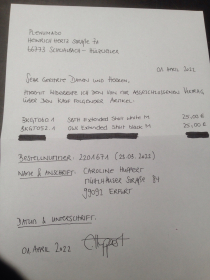 PLENTYMADE
HEINRICH-HERTZ-STRAßE
66773 SCHWALBACH - HÜLZWEILER
04. APRIL 2022
SEHR GEEHRTE DAMEN UND HERREN,
HIERMIT WIDERRUFE ICH DEN VON MIR ABGESCHLOSSENEN VERTRAG
ÜBER DEN KAUF FOLGENDER ARTIKEL:
EXTENDED SHIRT WHITE M 25,00 €
OWL EXTENDED SHIRT BLACK M 25,00 €
BESTELLNUMMER: 2201671 (25.03.2022)
NAME & ANSCHRIFT: CAROLINE HUPPERT
MÜHLHÄUSER STRAßE 84
99092 ERFURT
DATUM & UNTERSCHRIFT:
04. APRIL 2022